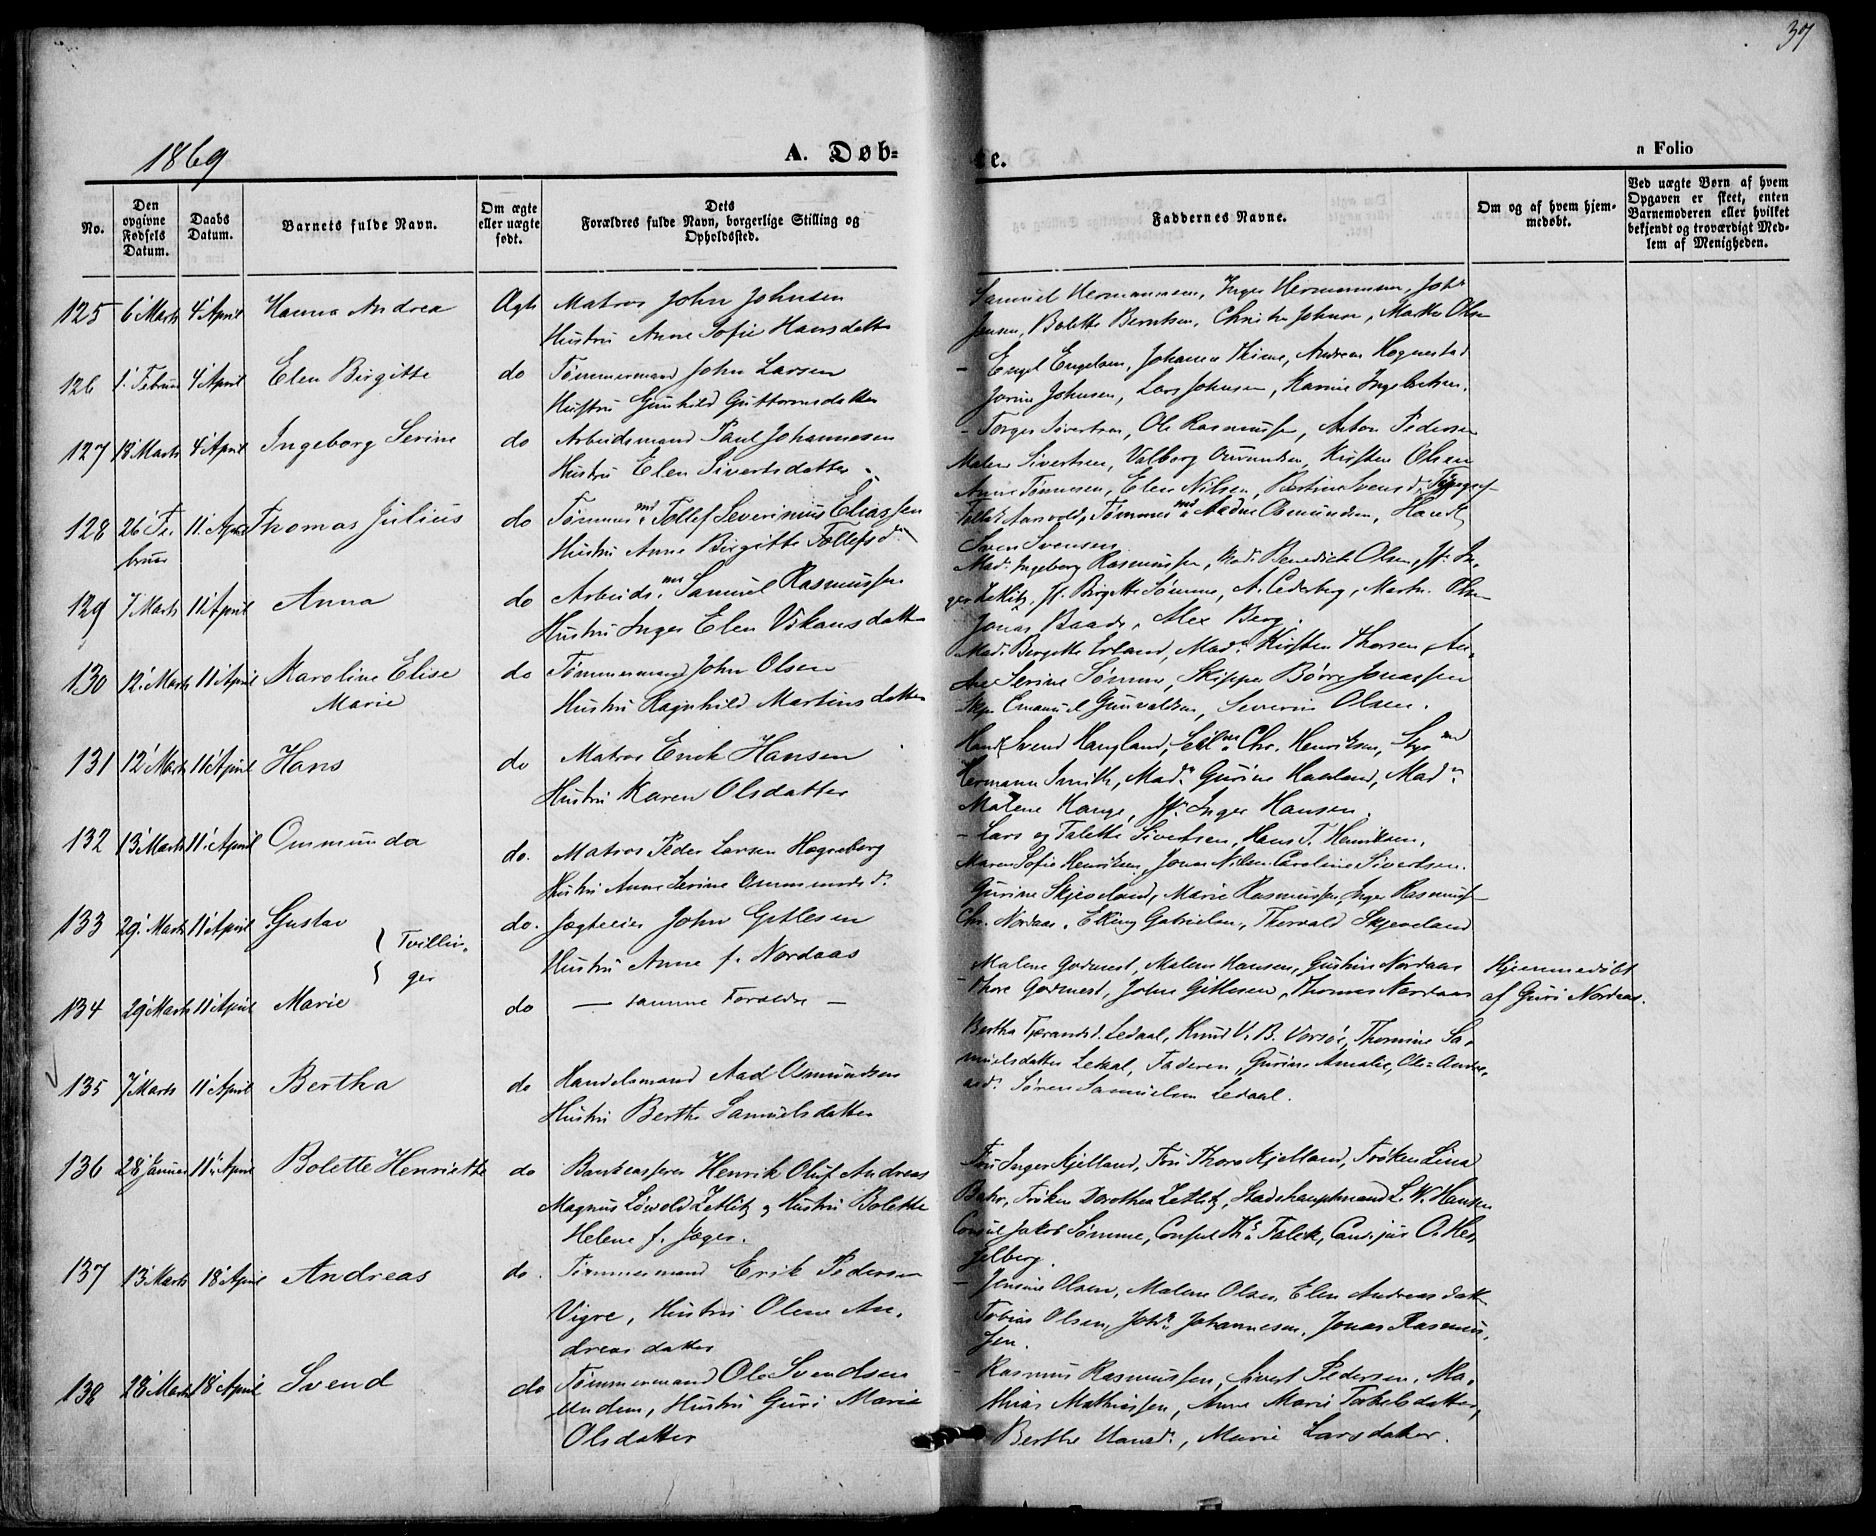 37
1869
A. Døb-
te.
n Folio
No.
Den opgivne Fødsels Datum.
Daabs Datum.
Barnets fulde Navn.
Om ægte eller uægte født.
Dets Forældres fulde Navn, borgerlige Stilling og Opholdssted.
Faddernes Navne.
Om og af hvem hjemmedøbt.
Ved uægte Børn af hvem Opgaven er skeet, enten Barnemoderen eller hvilket bekjendt og troværdigt Medlem af Menigheden.
125 6 Marts 4 April Hanna Andrea Ægte Matros John Johnsen
Hustru Anne Sofie Hansdatter
Samuel Hermannsen, Inger Hermannsen, Joh.
Jansen, Bolette Berntsen, Johnsen, Olsen
126 1. Februar 4 April Elen Birgitte do Tømmermand John Larsen
Hustru Gunhild Guttormsdatter
- Engel Engelsen, Johanna Thime, Andreas Hognestad
Jorine Johnsen, Lars Johnsen, Karine Ingebretsen.
127 18 Marts 4 April Ingeborg Serine do Arbeidsmand Paul Johannesen
Hustru Elen Sivertsdatter
- Torger Sivertsen, Ole Rasmussen, Anton Pedersen
Malene Sivertsen, Valborg Kirsten Olsen
128 26 Februar 11. April Thomas Julius do Tømmermd. Tollef Severinius Eliassen
Hustru Anne Birgitte Tollefsd.
Anne Tønnesen, Elen Nilsen, Svensd.
Aarsvold, Tømmermd. Osmundsen, Handl.
Sven Svensen
129 7 Marts 11 April Anna do Arbeidsm. Samuel Rasmussen
Hustru Inger Elen Vikansdatter
Mad. Ingeborg Rasmussen, Mad. Benedicte Olsen, Jf. In-
ger Zetlitz, Jf. Birgitte Sømme, A. Cederberg, Martin
Jonas Baade, Alex Berg.
130 12. Marts 11 April Karoline Elise
Marie
do Tømmermand John Olsen
Hustru Ragnhild Martinsdatter
Mad. Bergitte Erland, Mad. Kirsten Thorsen,
Serine Sømme, Skipper Børre Jonassen
Emanuel Gunvaldsen, Severin Olsen.
131 12 Marts 11 April Hans do Matros Enok Hansen
Hustru Karen Olsdatter
Handl. Svend Haugland, Chr. Henriksen,
Hermann Smith, Mad. Gurine Haaland, Mad.
Malene Hauge, Jf. Inger Hansen.
132 13 Marts 11 April Ommunda do. Matros Peder Larsen Hogneberg
Hustru Anne Serine Ommundsd.
- Lars og Talette Sivertsen, Hans T. Henriksen,
Maren Sofie Henriksen, Jonas Nilsen, Caroline Sivertsen.
133 29. Marts 11 April Gustav do. Jægteier John Gitlesen
Tvillin-
ger
Hustru Anne f. Nordaas
Gurine Skjeveland, Marie Rasmussen, Inger Rasmuss-
Chr. Nordaas, Elling Gabrielsen, Thorvald Skjeveland
134 29 Marts 11 April Marie do — samme Forældre —
Malene Godmest, Malene Hansen, Gurine Nordaas
- Thore Godmest, John Gitlesen, Thomas Nordaas
Hjemmedøbt
af Guri Nordaas.
135 7 Marts 11 April Bertha do Handelsmand Aad Osmundsen
Hustru Berthe Samuelsdatter
Bertha Tjerandsd. Ledaal, Knud V. B. Vorsøe, Thomine Sa-
muelsdatter Ledaal, Faderen, Gurine Amalie,
Søren Samuelsen Ledaal.
136 28 Januar 11 April Bolette Henriette do Bankcasserer Henrik Oluf Andreas
Magnus Løvold Zetlitz og Hustru Bolette
Helene f. Jæger.
Fru Inger Kjelland, Fru Thora Kjelland, Frøken Lina
Bahr, Frøken Dorothea Zetlitz, Stadshauptmand L. W. Hansen
Consul Jakob Sømme, Consul Th. Falck, Cand. jur. O. Hes-
selberg.
137 13 Marts 18 April Andreas do. Tømmermand Erik Pedersen
Vigre, Hustru Olene An-
dreasdatter
- Jensine Olsen, Malene Olsen, Elen Andreasdatt-
Tobias Olsen, Joh. Johannesen, Jonas Rasmus-
sen.
138 28 Marts 18 April Svend do Tømmermand Ole Svendsen
Undem, Hustru Guri Marie
Olsdatter
- Rasmus Rasmussen, Sivert Pedersen, Ma-
thias Mathiassen, Anne Marie Torkelsdatter,
Berthe Hansd., Marie Larsdatter.